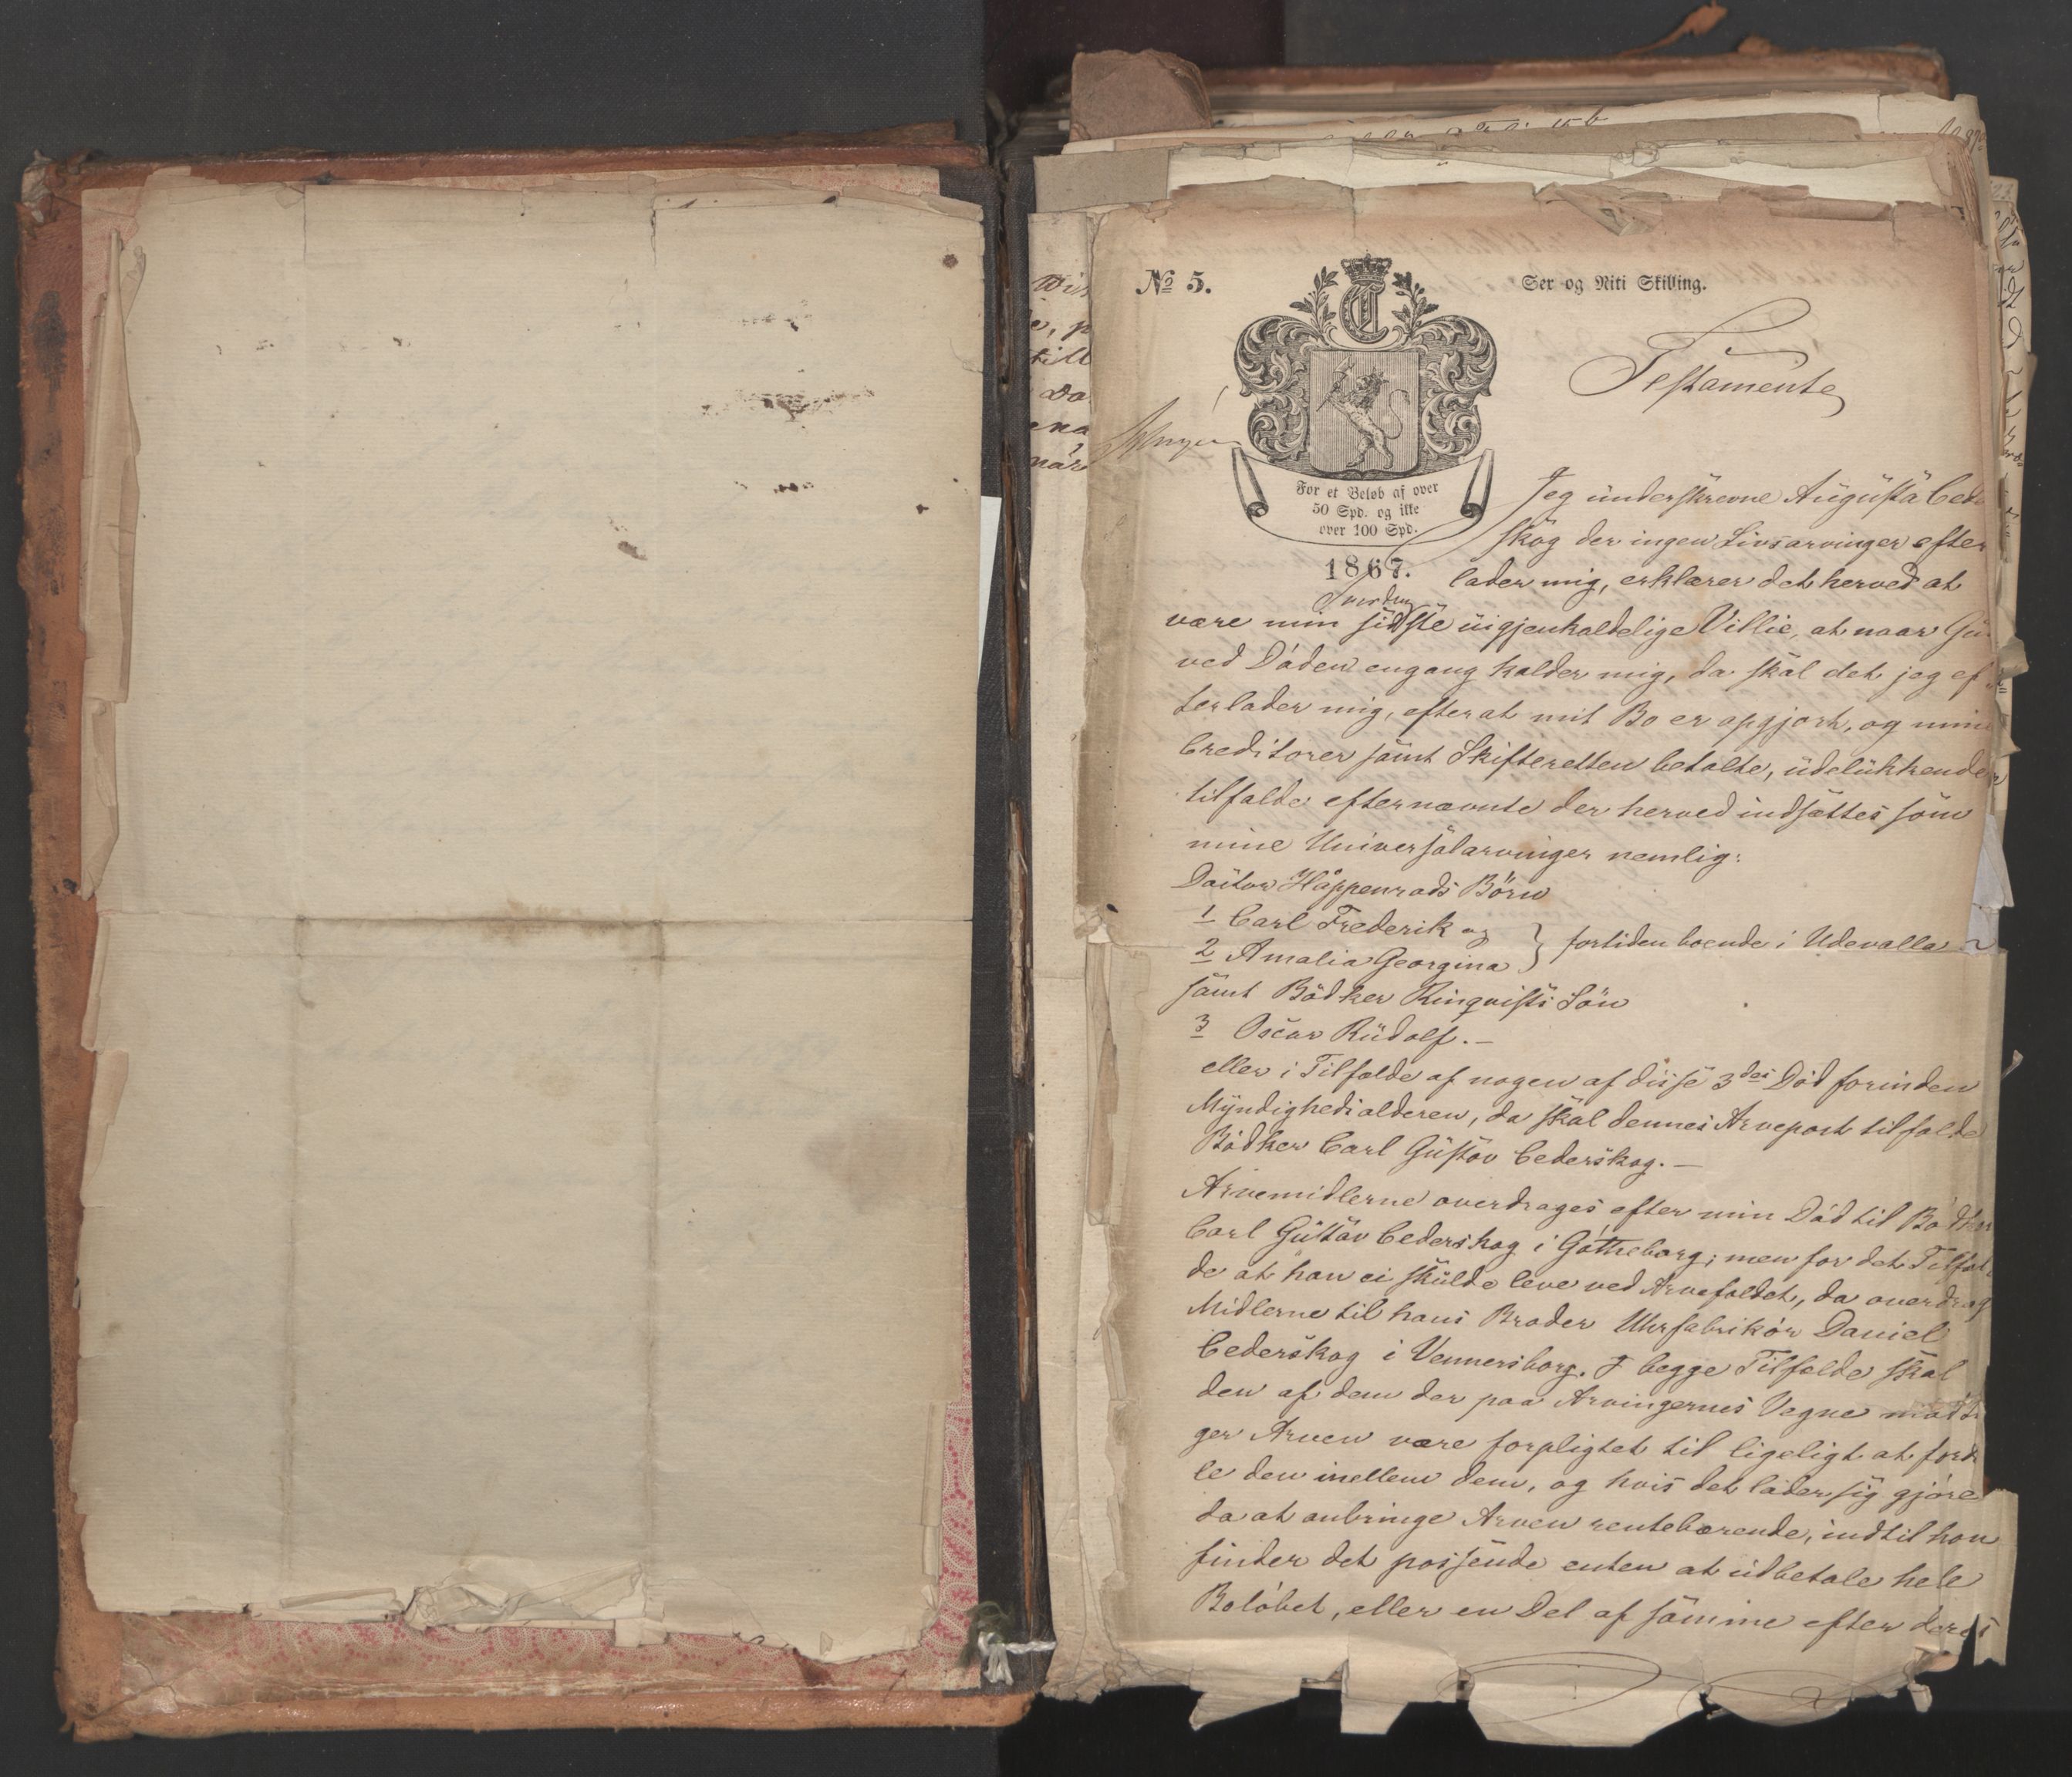 No 5.
Sex og Niti Skilling.
Testamente
For et Beløb af over
50 Spd. og ikke
over 100 Spd.
1867.
Jeg underskrevne Augusta Ceder
skog der ingen Livsarvinger efter
lader mig, erklærer det herved at
være min sidste uigjenkaldelige Villie, at naar Gu
ved Döden engang kalder mig, da skal det jeg ef
terlader mig, efter at mit Bo er opgjort, og mine
Creditorer samt Skifteretten betalte, udelukkende
tilfalde efternævnte der herved indsættes som
mine Universalarvinger nemlig:
Börn
1 Carl Frederik og
2 Amalia Georgina } fortiden boende i Udevalla
samt Bödker Ringqvists Sön
3 Oscar Rudolf. –
eller i Tilfælde af nogen af disse 3des Död forinden
Myndighedsalderen, da skal dennes Arvepart tilfalde
Bödker Carl Gustav Cederskog. –
Arvemidlerne overdrages efter min Död til Bödker
Carl Gustav Cederskog i Götheborg; men for det Tilfæl
de at han ei skulde leve ved Arvefaldet, da overdrag
Midlerne til hans Broder Uhrfabrikör Daniel
Cederskog i Vennersborg. I begge Tilfælde skal
den af dem der paa Arvingernes Vegne modta
ger Arven være forpligtet til ligeligt at forde
le den mellem dem, og hvis det lader sig gjöre
da at anbringe Arven rentebærende, indtil han
finder det passende enten at udbetale hele
Belöbet, eller en Del af samme efter deres